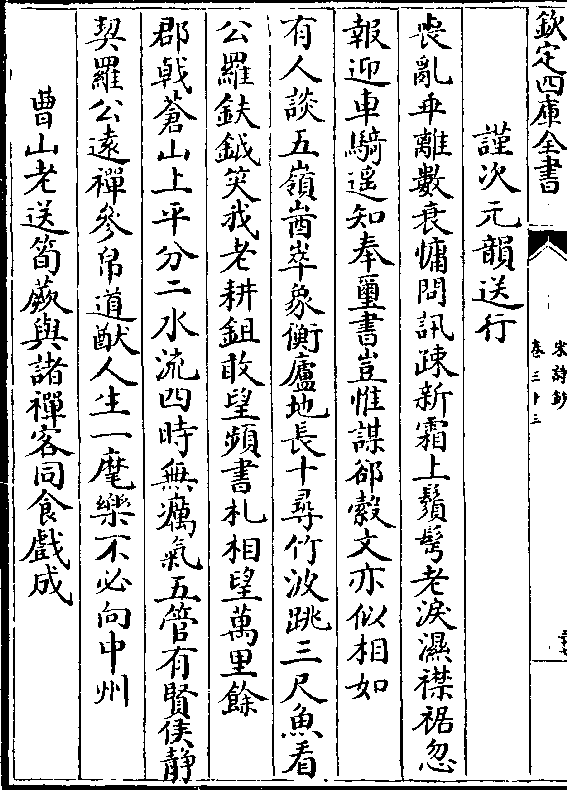 欽定四庫全書
宋詩鈔
卷三十三
謹次元韻送行
喪亂乖離數衰慵問訊踈新霜上鬚髩老淚濕襟裾忽
報迎車騎遥知奉璽書豈惟謀郤縠文亦似相如
有人談五嶺崷崒象衡廬地長十尋竹波跳三尺魚看
公羅鈇鉞笑我老耕鉏敢望頻書札相望萬里餘
郡㦸蒼山上平分二水流四時無癘氣五管有賢侯静
契羅公遠禪參帛道猷人生一麾樂不必向中州
曹山老送筍蕨與諸禪客同食戲成